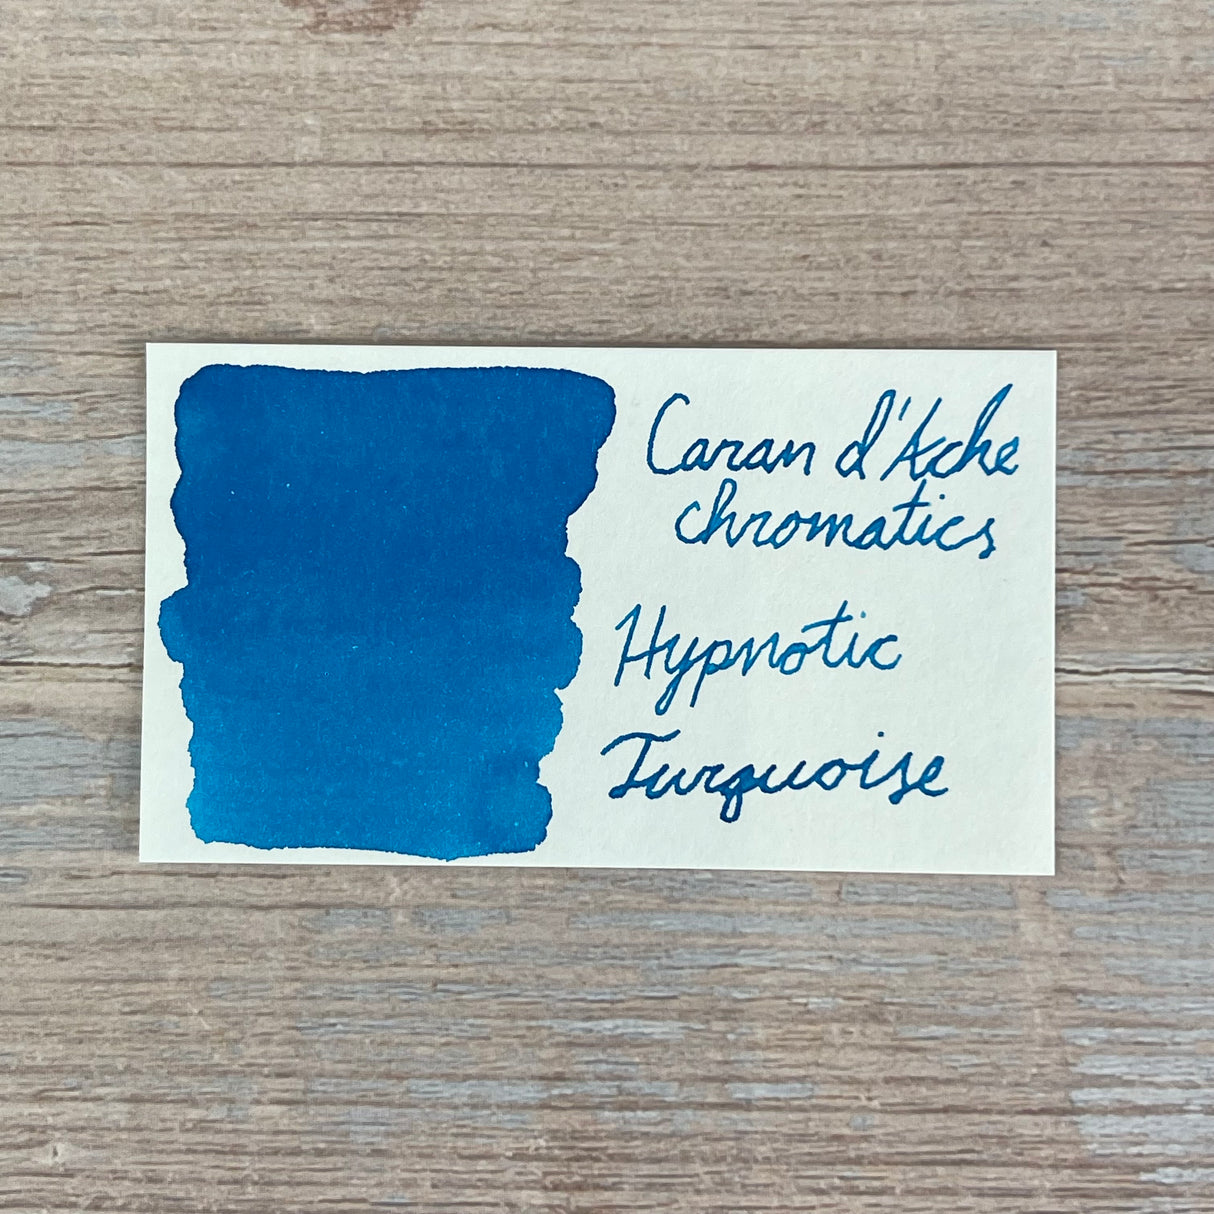 Caran d'Ache
chromatics
Hypnotic
Turquoise